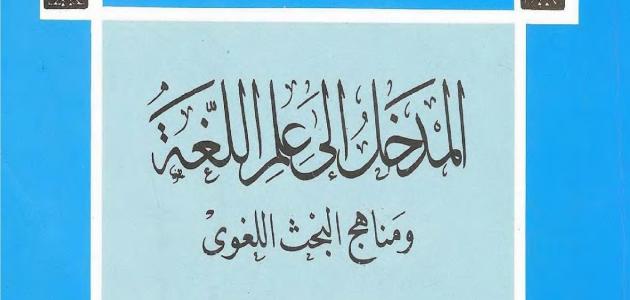 المَدْخَلُ إلى عِلْمِ اللُّغَةِ
ومَناهج البَحْث اللغوى